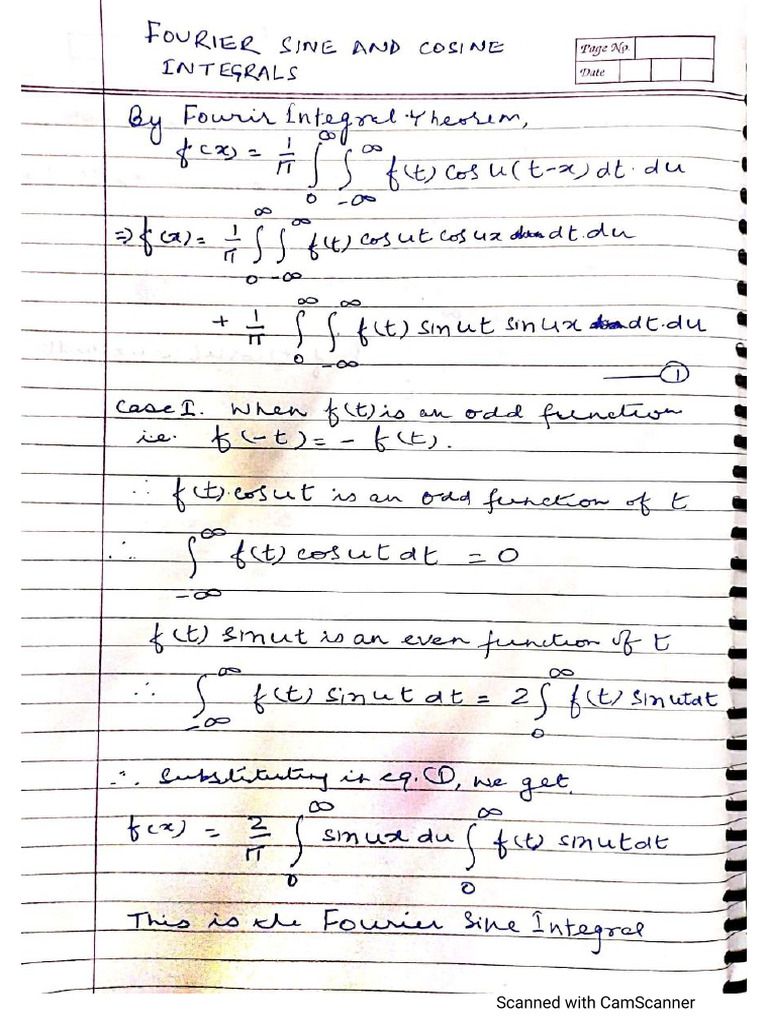 FOURIER SINE AND COSINE
INTEGRALS
Page No.
Date
By Fourir Integral Theorem,
f(x) = 1/π ∫₀^∞ ∫₋∞^∞ f(t) cos u(t-x) dt. du
⇒ f(x) = 1/π ∫₀^∞ ∫₋∞^∞ f(t) cos ut cos ux dt. du
+ 1/π ∫₀^∞ ∫₋∞^∞ f(t) sin ut sin ux dt. du
— ①
Case I. When f(t) is an odd function
i.e. f(-t) = - f(t).
∴ f(t). cos ut is an odd function of t
∴ ∫₋∞^∞ f(t) cos ut dt = 0
f(t) sin ut is an even function of t
∴ ∫₋∞^∞ f(t) sin ut dt = 2 ∫₀^∞ f(t) sin ut dt
∴ Substituting in eq. ①, we get,
f(x) = 2/π ∫₀^∞ sin ux du ∫₀^∞ f(t) sin ut dt
This is the Fourier Sine Integral
Scanned with CamScanner